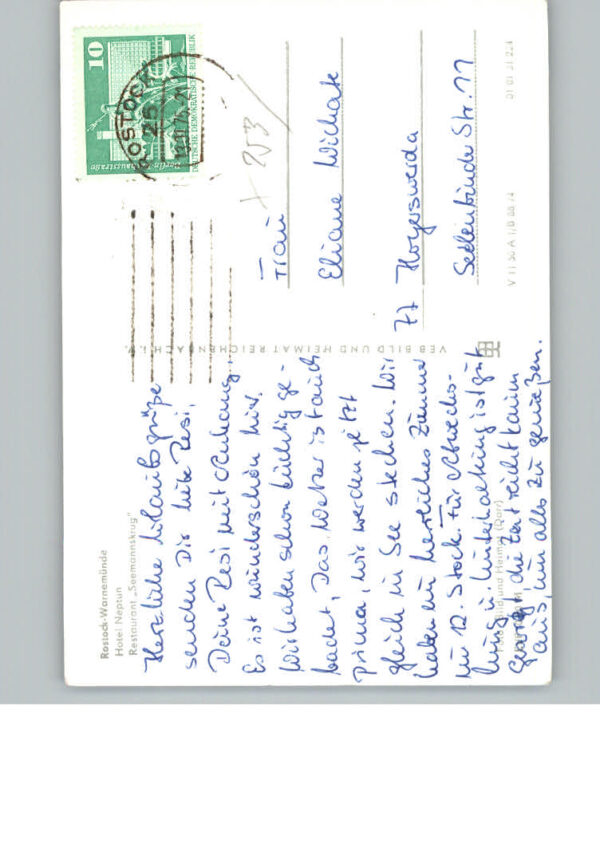 Rostock-Warnemünde
Hotel Neptun
Restaurant „Seemannskrug"
Herzliche Urlaubsgrüße
senden Dir liebe Resi,
Deine Resi mit Anhang.
Es ist wunderschön hier.
Wir haben schon tüchtig ge-
badet, Das Wetter ist auch
prima, wir werden jetzt
gleich in See stechen. Wir
haben ein herrliches Zimmer
im 12. Stock. Für Abwechs-
lung u. Unterhaltung ist gut
gesorgt die Zeit reicht kaum
aus, um alles zu genießen.
Bild und Heimat (Darr)
VEB BILD UND HEIMAT REICHENBACH I. V.
10
DEUTSCHE DEMOKRATISCHE REPUBLIK
ROSTOCK
25
+ 253/
Frau
Eliane
77 Hoyerswerda
Str. 11
V 11 50 A 1/B 88/74
01 01 31 224